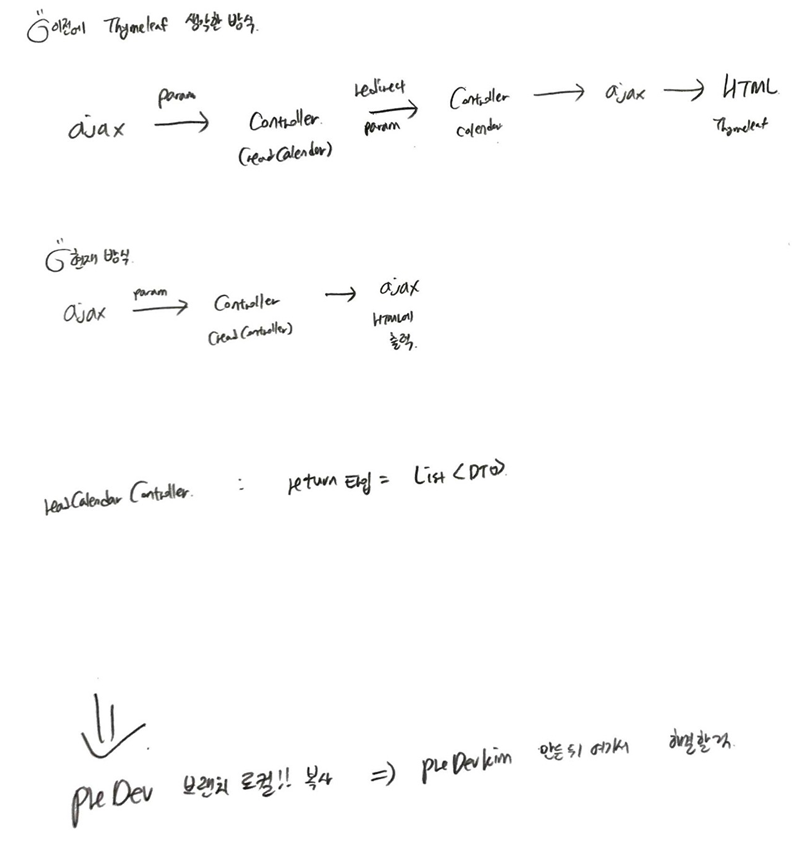 이전에 Thymeleaf 생각한 방식.
ajax param → Controller. (readCalender) redirect param → Controller Calendar → ajax → HTML Thymeleaf
현재 방식.
ajax param → Controller (readController) → ajax HTML에 출력.
readCalendar Controller. : return 타입 = List <DTO>
preDev 브랜치 로컬!! 복사 => preDevkim 만든 뒤 여기서 해결할것.